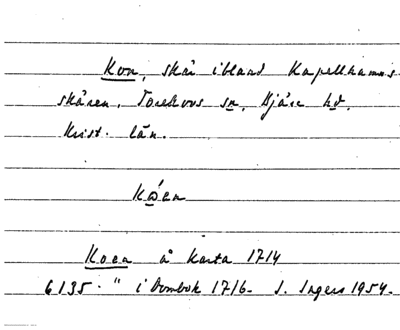 Koa, skär ibland Kapellhamns-
skären, Torekovs sn, Bjäre hd.
Krist. län.
Kǿen
Koea å karta 1714
6135 - " i Dombok 1716 - S. Ingers 1954.